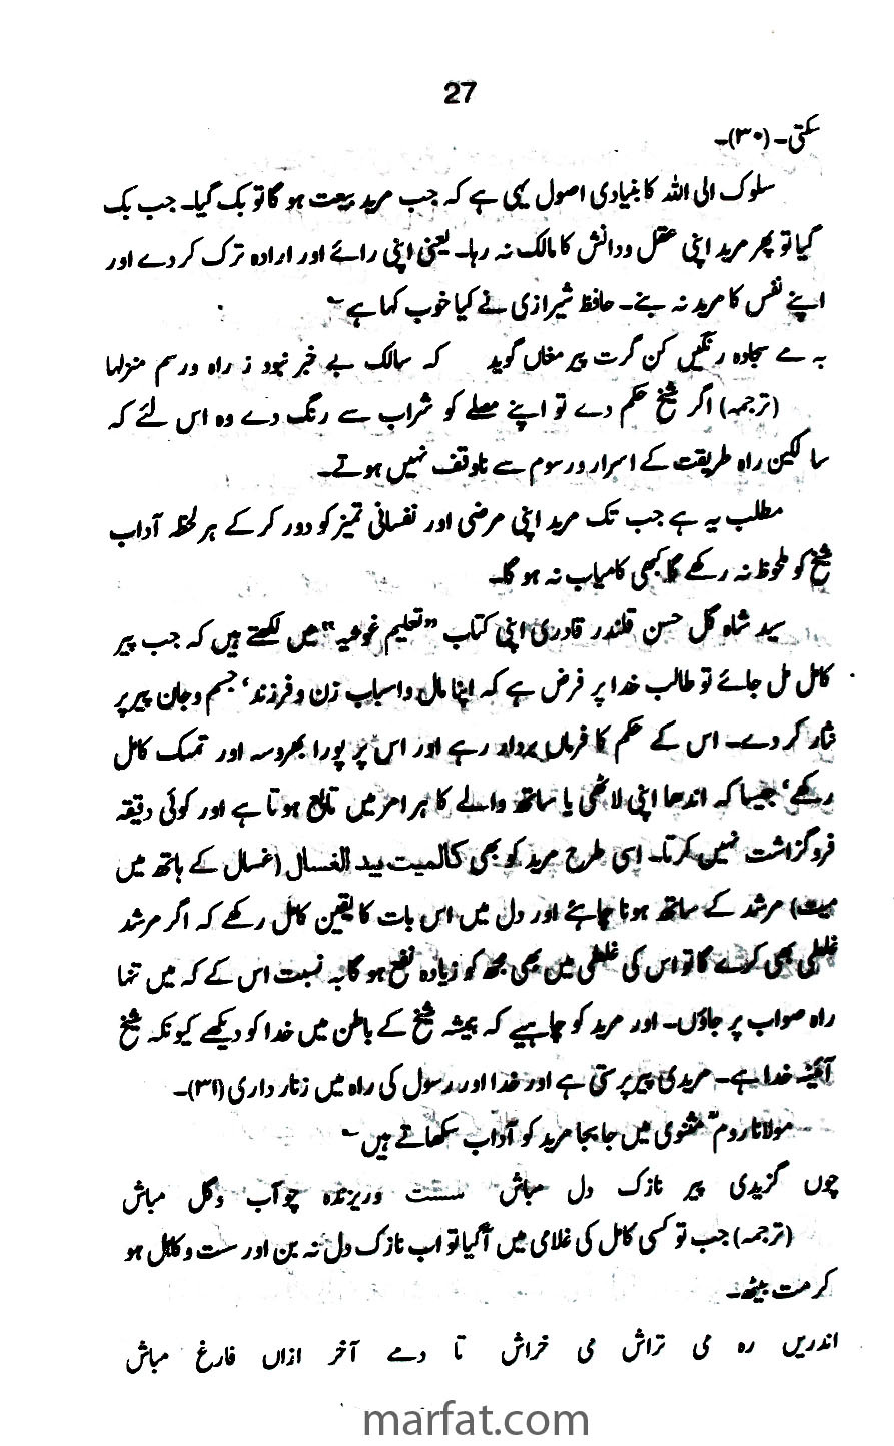 27
سکتی۔ (۳۰)۔
سلوک الی اللہ کا بنیادی اصول یہی ہے کہ جب مرید بیعت ہو گا تو بک گیا۔ جب بک
گیا تو پھر مرید اپنی عقل و دانش کا مالک نہ رہا۔ یعنی اپنی رائے اور ارادہ ترک کر دے اور
اپنے نفس کا مرید نہ بنے۔ حافظ شیرازی نے کیا خوب کہا ہے ؎
بہ مے سجادہ رنگیں کن گرت پیر مغاں گوید کہ سالک بے خبر نبود ز راہ و رسم منزلہا
(ترجمہ) اگر شیخ حکم دے تو اپنے مصلے کو شراب سے رنگ دے وہ اس لئے کہ
سالکین راہ طریقت کے اسرار و رسوم سے ناوقف نہیں ہوتے۔
مطلب یہ ہے جب تک مرید اپنی مرضی اور نفسانی تمیز کو دور کر کے ہر لحظہ آداب
شیخ کو ملحوظ نہ رکھے گا کبھی کامیاب نہ ہو گا۔
سید شاہ گل حسن قلندر قادری اپنی کتاب "تعلیم غوثیہ" میں لکھتے ہیں کہ جب پیر
کامل مل جائے تو طالب خدا پر فرض ہے کہ اپنا مال و اسباب زن و فرزند‘ جسم و جان پیر پر
نثار کر دے۔ اس کے حکم کا فرماں بردار رہے اور اس پر پورا بھروسہ اور تمسک کامل
رکھے‘ جیسا کہ اندھا اپنی لاٹھی یا ساتھ والے کا ہر امر میں تابع ہوتا ہے اور کوئی دقیقہ
فروگزاشت نہیں کرتا۔ اسی طرح مرید کو بھی کالمیت بید الغسال (غسال کے ہاتھ میں
میت) مرشد کے ساتھ ہونا چاہئے اور دل میں اس بات کا یقین کامل رکھے کہ اگر مرشد
غلطی بھی کرے گا تو اس کی غلطی میں بھی مجھ کو زیادہ نفع ہو گا بہ نسبت اس کے کہ میں تنہا
راہ صواب پر جاؤں۔ اور مرید کو چاہیے کہ ہمیشہ شیخ کے باطن میں خدا کو دیکھے کیونکہ شیخ
آئینہ خدا ہے۔ مریدی پیر پرستی ہے اور خدا اور رسول کی راہ میں زنار داری (۳۱)۔
مولانا روم مثنوی میں جابجا مرید کو آداب سکھاتے ہیں ؎
چوں گزیدی پیر نازک دل مباش سست و ریزندہ چو آب و گل مباش
(ترجمہ) جب تو کسی کامل کی غلامی میں آ گیا تو اب نازک دل نہ بن اور ست و کاہل ہو
کر مت بیٹھ۔
اندریں رہ می تراش می خراش تا دمے آخر ازاں فارغ مباش
marfat.com